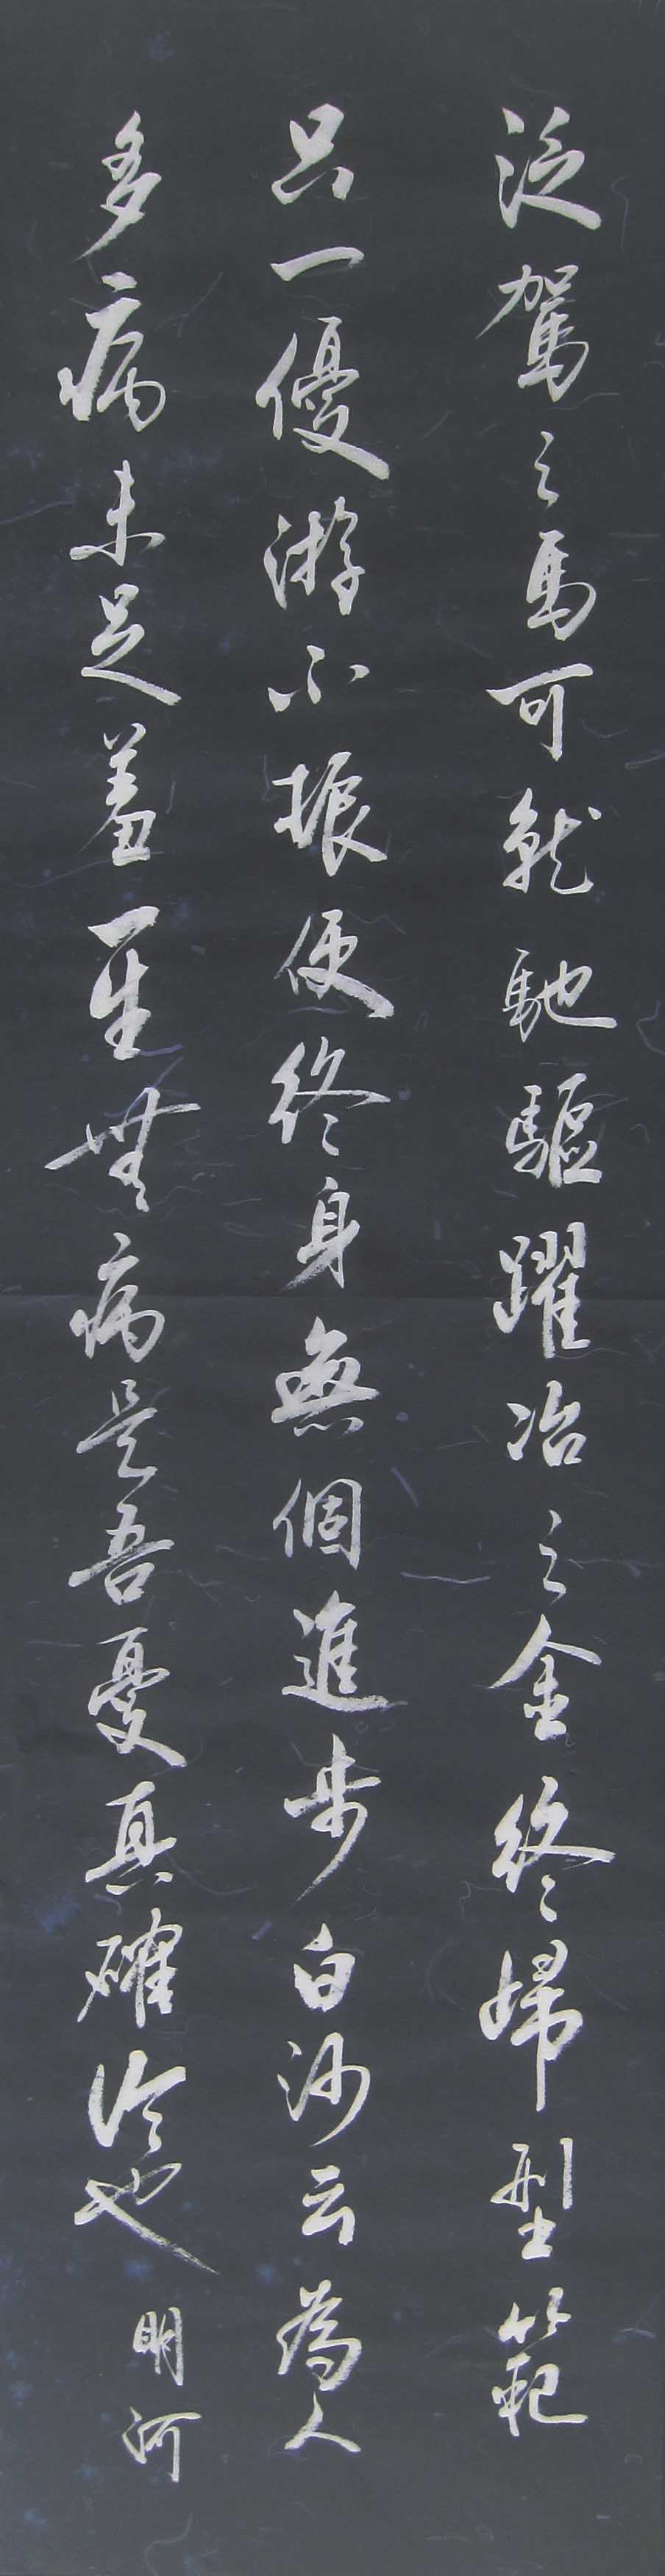 泛駕之馬可就馳驅躍冶之金終歸型範
只一優游不振便終身無個進步白沙云為人
多病未足羞一生無病是吾憂真確論也
明河